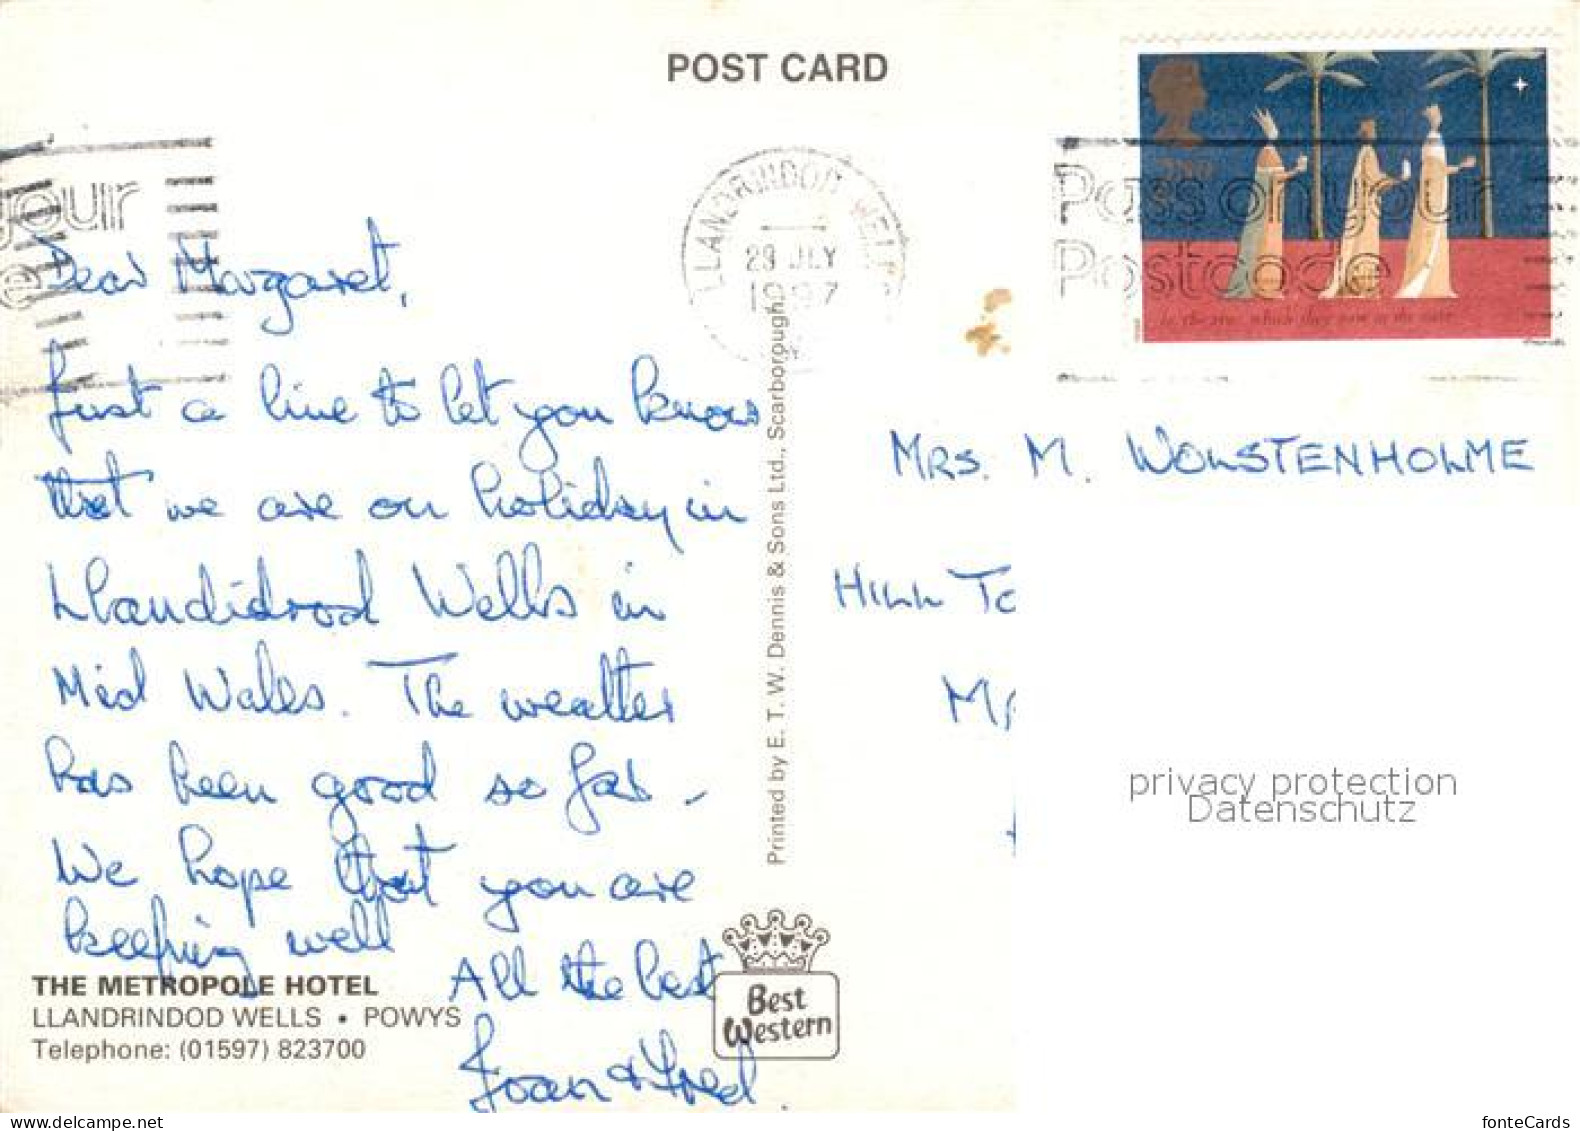 POST CARD
LLANDRINDOD WELLS
29 JLY
1997
2ND
Pass on your
Postcode
your
Dear Margaret,
Just a line to let you know
that we are on holiday in
Llandidrod Wells in
Mid Wales. The weather
has been good so far -
We hope that you are
keeping well
All the best
Joan & Fred
MRS. M. WOLSTENHOLME
HILL TO
MA
Printed by E. T. W. Dennis & Sons Ltd., Scarborough
THE METROPOLE HOTEL
LLANDRINDOD WELLS • POWYS
Telephone: (01597) 823700
Best
Western
privacy protection
Datenschutz
delcampe.net
fonteCards